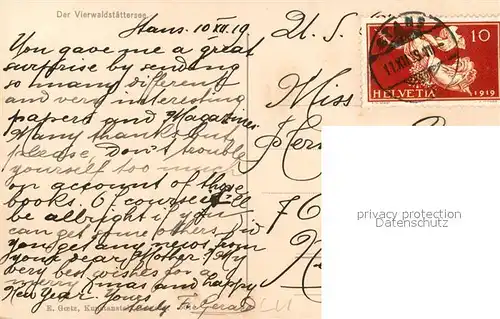 Der Vierwaldstättersee
Stans. 10 XII 19
You gave me a great
surprise by sending
so many different
and very interesting
papers and Magazines
Many thanks but
please, Don't trouble
yourself too much
on account of those
books. Of course it'll
be allright if you
can get some others, Did
you get any news from
your dear Mother? My
very best wishes for a
merry Xmas and happy
New Year. Yours
U. S.
Miss
76
10
HELVETIA
1919
privacy protection
Datenschutz
E. Goetz, Kunstanstalt